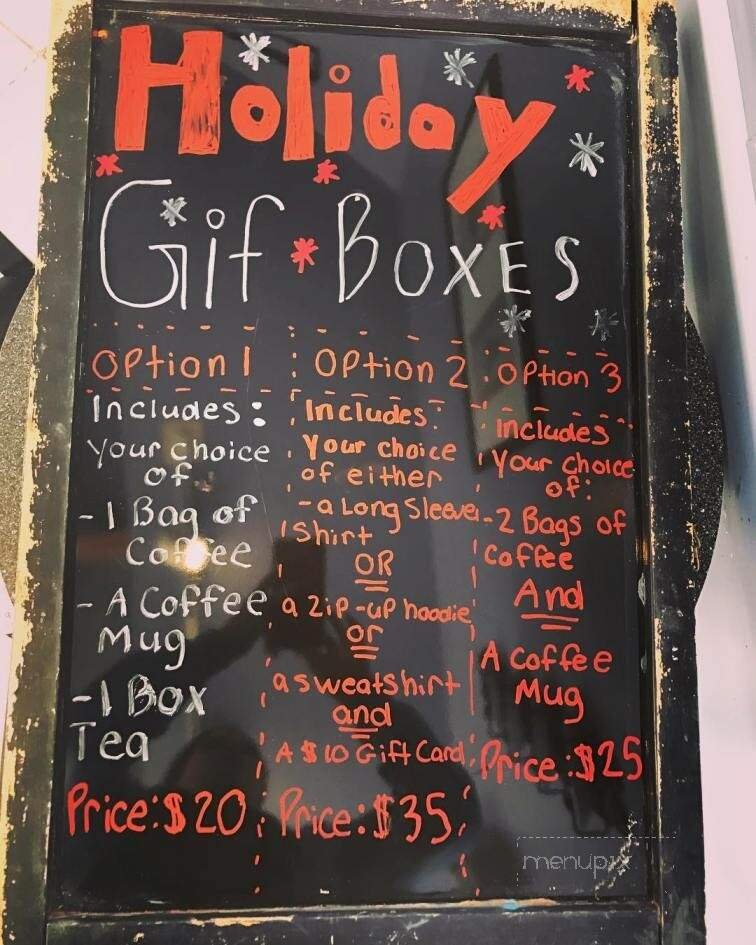 Holiday
Gif Boxes
Option 1
Includes:
Your choice
of
-1 Bag of
Coffee
- A Coffee
Mug
-1 Box
Tea
Price:$20
Option 2
Includes:
Your choice
of either
-a Long Sleeve
Shirt
OR
a zip-up hoodie
or
a sweatshirt
and
A $10 Gift Card
Price:$35
Option 3
includes
Your choice
of:
-2 Bags of
Coffee
And
A Coffee
Mug
Price:$25
menupix